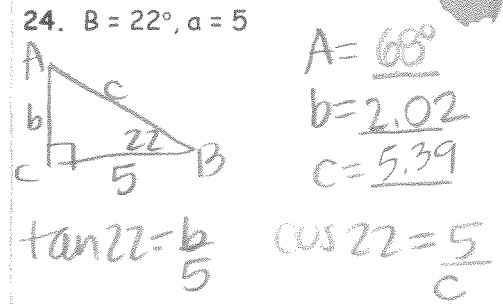 24. B = 22°, a = 5
A
c
b
22
C
5
B
A = 68°
b = 2.02
c = 5.39
tan 22 = b/5
cos 22 = 5/c